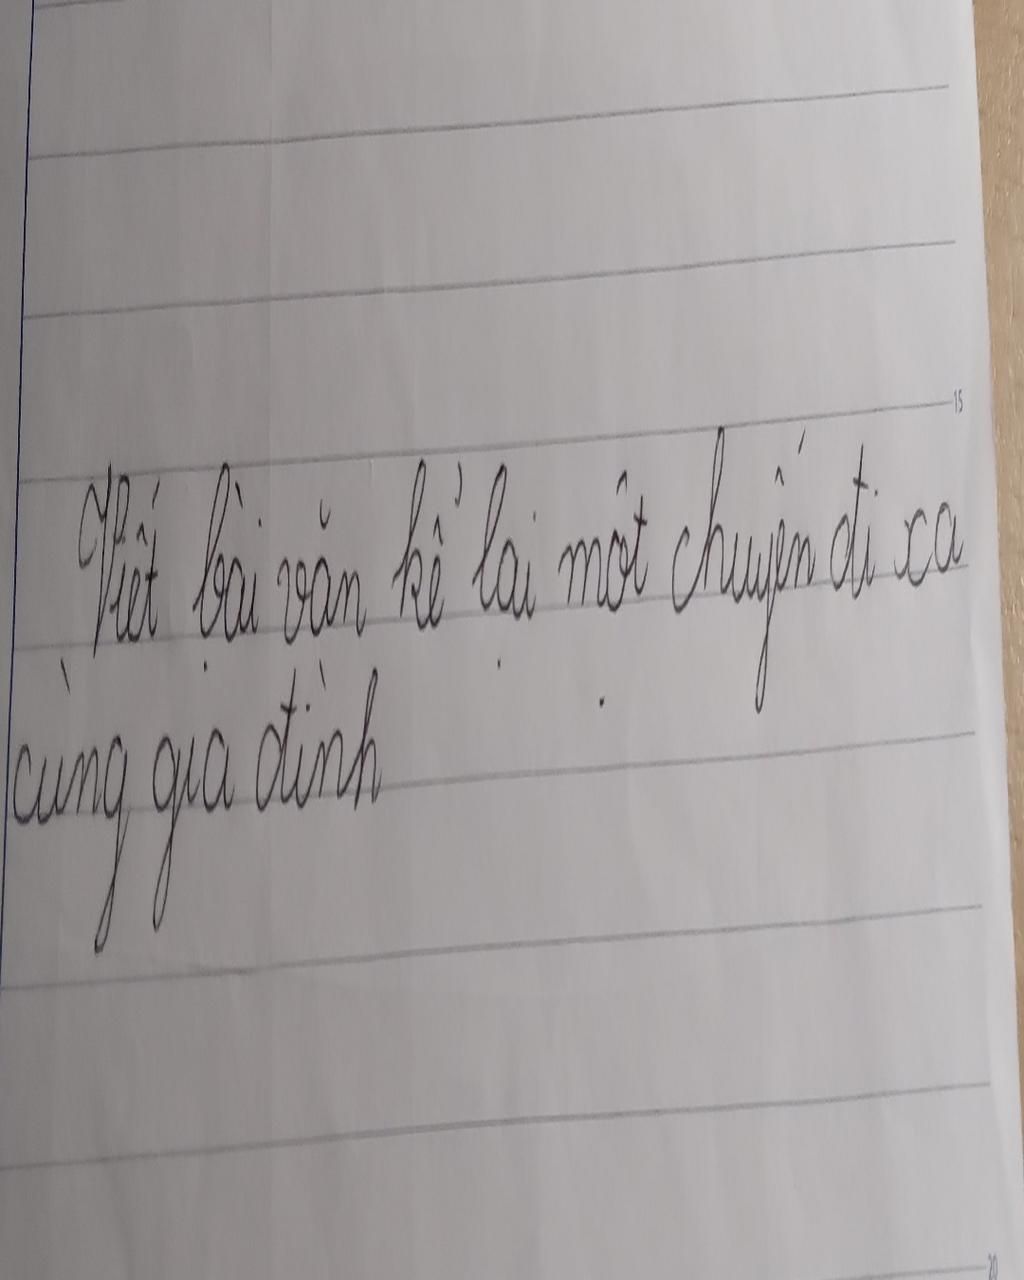 15
Viết bài văn kể lại một chuyến đi xa
cùng gia đình
20